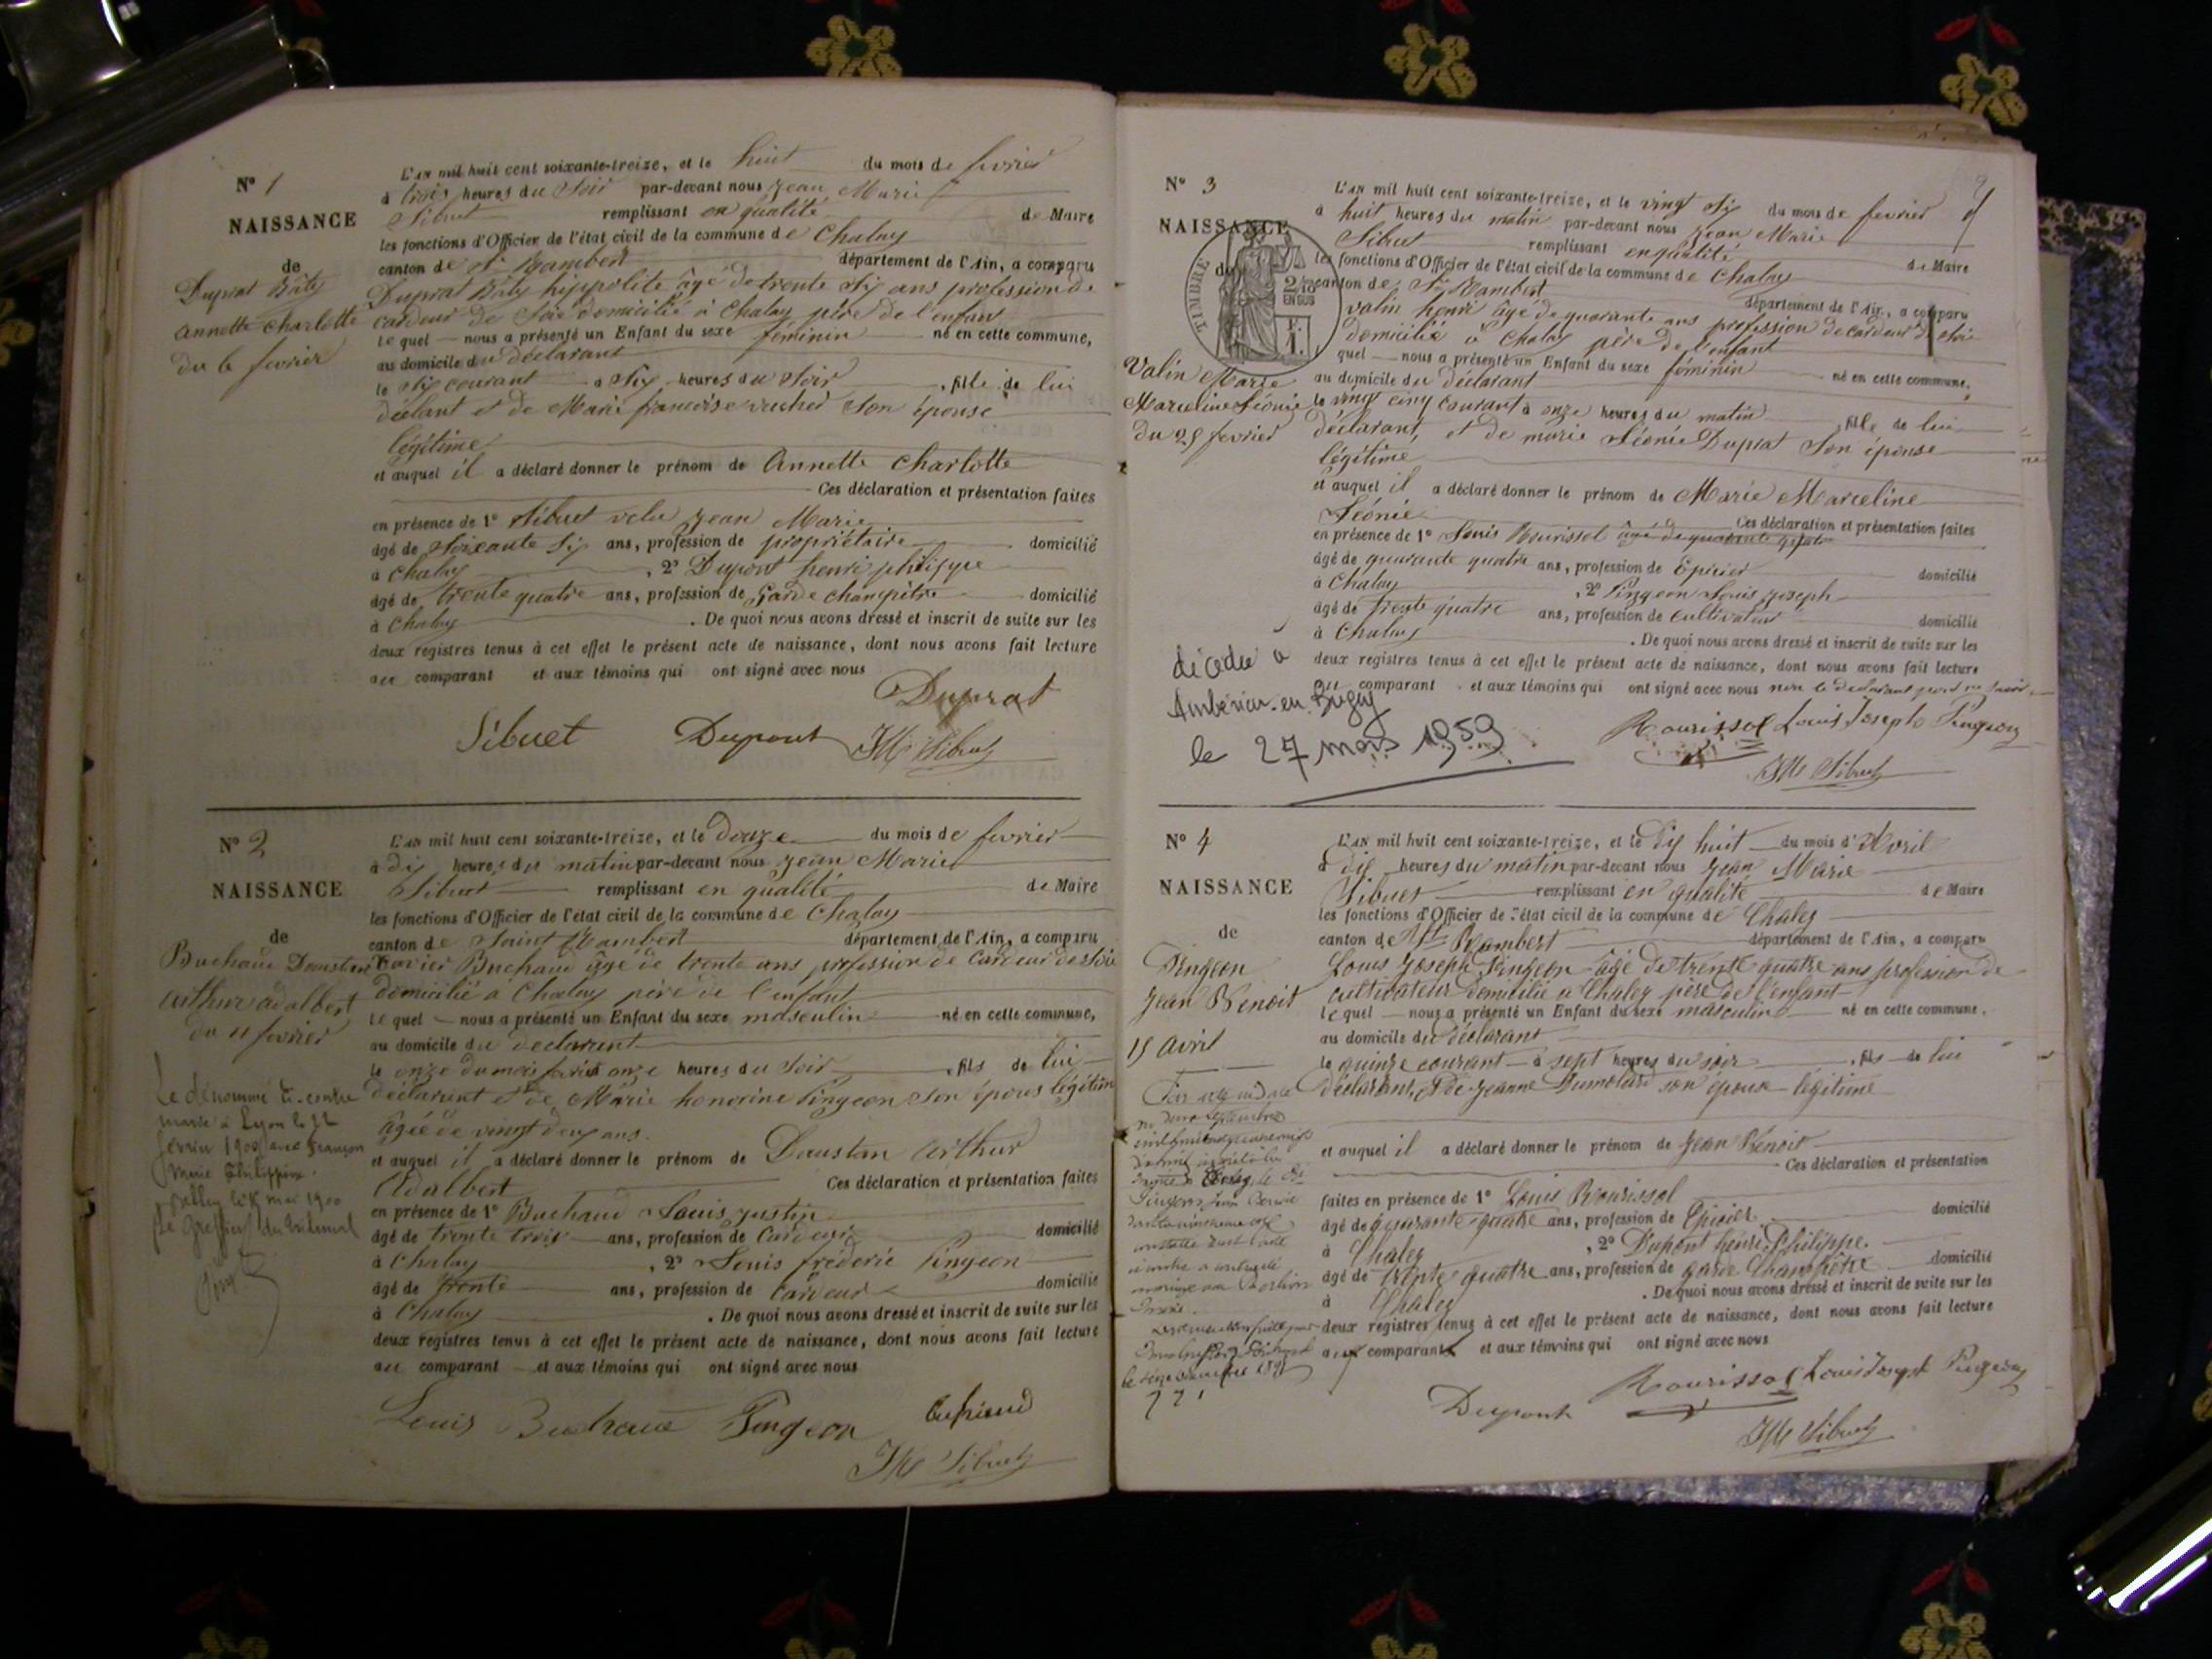 N° 1
NAISSANCE
de
Duprat Bâty
annette charlotte
du 6 fevrier
L'an mil huit cent soixante-treize, et le huit du mois de fevrier
à trois heures du Soir par-devant nous jean Marie
Sibuet remplissant en qualité de Maire
les fonctions d'Officier de l'état civil de la commune de Chaley
canton de St Rambert département de l'Ain, a comparu
Duprat Bâty hyppolite âgé de trente Six ans profession de
cardeur de Soie domicilié à Chaley père de l'enfant
lequel nous a présenté un Enfant du sexe féminin né en cette commune,
au domicile du déclarant
le Six courant à Six heures du Soir , fille de lui
déclant et de Marie francoise vucher Son épouse
légitime
et auquel il a déclaré donner le prénom de Annette Charlotte
Ces déclaration et présentation faites
en présence de 1° Sibuet velu jean Marie
âgé de Soixante Six ans, profession de propriétaire domicilié
à Chaley , 2° Dupont henri philippe
âgé de trente quatre ans, profession de Garde champêtre domicilié
à Chaley . De quoi nous avons dressé et inscrit de suite sur les
deux registres tenus à cet effet le présent acte de naissance, dont nous avons fait lecture
au comparant et aux témoins qui ont signé avec nous
Duprat
Sibuet Dupont JM Sibuet
N° 2
NAISSANCE
de
Buchaud Donstan
arthur adalbert
du 11 fevrier
Le dénommé ci-contre
marié à Lyon le 22
février 1900 avec françon
Marie Philippine.
Belley le 15 mai 1900
Le Greffier du tribunal
L'an mil huit cent soixante-treize, et le douze du mois de fevrier
à dix heures du matin par-devant nous jean Marie
Sibuet remplissant en qualité de Maire
les fonctions d'Officier de l'état civil de la commune de Chaley
canton de Saint Rambert département de l'Ain, a comparu
Xavier Buchaud âgé de trente ans profession de Cardeur de Soie
domicilié à Chaley père de l'enfant
lequel nous a présenté un Enfant du sexe masculin né en cette commune,
au domicile du déclarant
le onze du mois fevrier à onze heures du Soir , fils de lui
déclarant et de Marie honorine Pingeon Son épous légitim
âgée de vingt deux ans.
et auquel il a déclaré donner le prénom de Donstan Arthur
Adalbert Ces déclaration et présentation faites
en présence de 1° Buchaud Louis justin
âgé de trente trois ans, profession de Cardeur domicilié
à Chaley , 2° Louis fréderic Pingeon
âgé de trente ans, profession de Cardeur domicilié
à Chaley . De quoi nous avons dressé et inscrit de suite sur les
deux registres tenus à cet effet le présent acte de naissance, dont nous avons fait lecture
au comparant et aux témoins qui ont signé avec nous
Louis Buchaud Pingeon
JM Sibuet
N° 3
NAISSANCE
de
TIMBRE
2/10
EN SUS
Valin Marie
Marceline Léonie
du 25 fevrier
décédée à
Ambérieu-en-Bugey
le 27 mars 1959
L'an mil huit cent soixante-treize, et le vingt Six du mois de fevrier
à huit heures du matin par-devant nous jean Marie
Sibuet remplissant en qualité de Maire
les fonctions d'Officier de l'état civil de la commune de Chaley
canton de St Rambert département de l'Ain, a comparu
valin henri âgé de quarante ans profession de cardeur de Soie
domicilié à Chaley père de l'enfant
quel nous a présenté un Enfant du sexe féminin né en cette commune,
au domicile du déclarant
le vingt cinq courant à onze heures du matin , fille de lui
déclarant, et de marie Léonie Duprat Son épouse
légitime
et auquel il a déclaré donner le prénom de Marie Marceline
Léonie Ces déclaration et présentation faites
en présence de 1° Louis Rourissol âgé de quarante quatre
âgé de quarante quatre ans, profession de Epicier domicilié
à Chaley , 2° Pingeon Louis joseph
âgé de trente quatre ans, profession de cultivateur domicilié
à Chaley . De quoi nous avons dressé et inscrit de suite sur les
deux registres tenus à cet effet le présent acte de naissance, dont nous avons fait lecture
au comparant et aux témoins qui ont signé avec nous non le déclarant
Rourissol Louis Joseph Pingeon
JM Sibuet
N° 4
NAISSANCE
de
Pingeon
Jean Benoit
15 Avril
L'an mil huit cent soixante-treize, et le dix huit du mois d'Avril
à dix heures du matin par-devant nous Jean Marie
Sibuet remplissant en qualité de Maire
les fonctions d'Officier de l'état civil de la commune de Chaley
canton de St Rambert département de l'Ain, a comparu
Louis Joseph Pingeon âgé de trente quatre ans profession de
cultivateur domicilié à Chaley père de l'enfant
lequel nous a présenté un Enfant du sexe masculin né en cette commune,
au domicile du déclarant
le quinze courant à sept heures du soir , fils de lui
déclarant, et de Jeanne Dumolard son épouse légitime
et auquel il a déclaré donner le prénom de Jean Benoit
Ces déclaration et présentation
faites en présence de 1° Louis Rourissol
âgé de quarante quatre ans, profession de Epicier domicilié
à Chaley , 2° Dupont henri Philippe.
âgé de trente quatre ans, profession de garde Champêtre domicilié
à Chaley . De quoi nous avons dressé et inscrit de suite sur les
deux registres tenus à cet effet le présent acte de naissance, dont nous avons fait lecture
aux comparant et aux témoins qui ont signé avec nous
Rourissol Louis Joseph Pingeon
Dupont
JM Sibuet